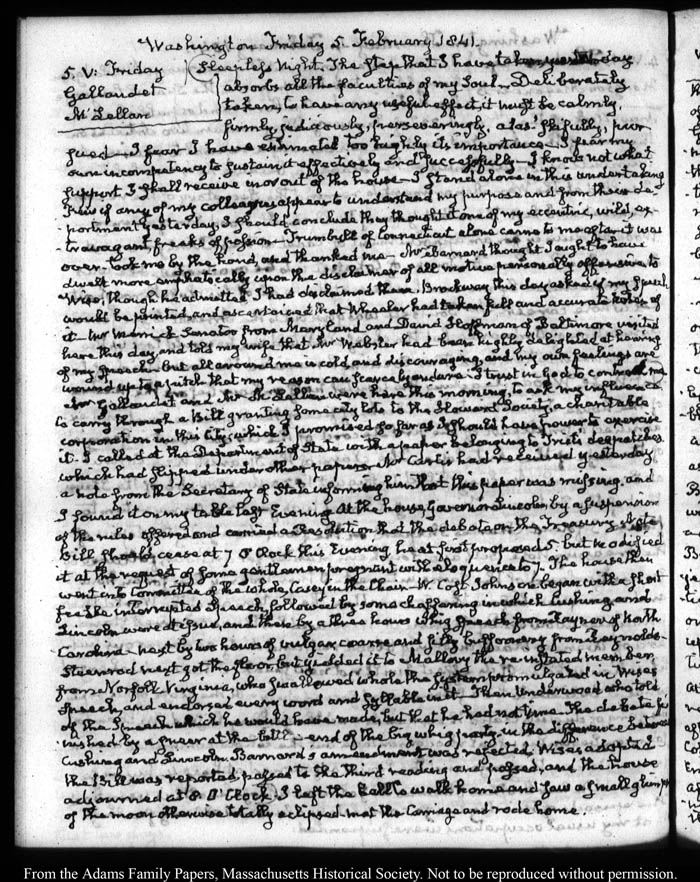 Washington Friday 5. February 1841.
5. V: Friday
Gallaudet
McLellan
Sleepless Night. The step that I have taken yesterday
absorbs all the faculties of my Soul. Deliberately
taken, to have any useful effect, it must be calmly,
firmly, judiciously, perseveringly, alas! skilfully, pur
sued. I fear I have estimated too highly its importance. I fear my
own incompetency to sustain it effectively and successfully. I know not what
support I shall receive in or out of the house. I stand alone in this undertaking
Few if any of my colleagues appear to understand my purpose and from their de
portment yesterday, I should conclude they thought it one of my eccentric, wild, ex
travagant freaks of passion. Trumbull of Connecticut alone came to me after it was
over, took me by the hand, and thanked me. Mr Barnard thought I ought to have
dwelt more emphatically upon the disclaimer of all motive personally offensive to
Wise, though he admitted I had disclaimed them. Brockway this day asked if my Speech
would be printed, and ascertained that Wheeler had taken full and accurate notes of
it. Mr Merrick Senator from Maryland and David Hoffman of Baltimore visited
here this day, and told my wife that Mr Webster had been highly delighted at hearing
of my Speech. but all around me is cold and discouraging, and my own feelings are
wound up to a pitch that my reason can scarcely endure. I trust in God to control me
Mr Gallaudet and Mr McLellan were here this morning, to ask my influence
to carry through a Bill granting some city lots to the Howard Society, a charitable
corporation in this City; which I promised so far as I should have power to exercise
it. I called at the Department of State with a paper belonging to Trist's despatches
which had slipped under other papers. Mr Curtis had received yesterday
a note from the Secretary of State informing him that this paper was missing, and
I found it on my table last Evening. At the house, Governor Lincoln, by a suspension
of the rules offered and carried a Resolution that the debate on the Treasury Note
Bill should cease at 7 O'Clock this Evening, he at first proposed 5. but modified
it at the request of some gentlemen pregnant with eloquence to 7. The house then
went into Committee of the whole, Casey in the Chair. W. Cost Johnson began with a short
free interrupted Speech, followed by some chaffering in which Cushing and
Lincoln were at issue, and then by a three hours whig speech from Rayner of North
Carolina. next by two hours of vulgar, coarse and filthy buffoonery from Reynolds
Steenrod next got the floor but yielded it to Mallory the reinstated member
from Norfolk Virginia, who swallowed whole the system promulgated in Wise's
Speech, and endorsed every word and syllable in it. Then Underwood who told
of the Speech which he would have made, but that he had not time. The debate fi
nished by a sneer at the end of the big whig party, in the difference between
Cushing and Lincoln. Barnard's amendment was rejected, Wise's adopted
the Bill was reported, passed to the third reading and passed, and the house
adjourned at 8 O'Clock. I left the hall to walk home and saw a small glimpse
of the moon otherwise totally eclipsed. met the Carriage and rode home.
From the Adams Family Papers, Massachusetts Historical Society. Not to be reproduced without permission.